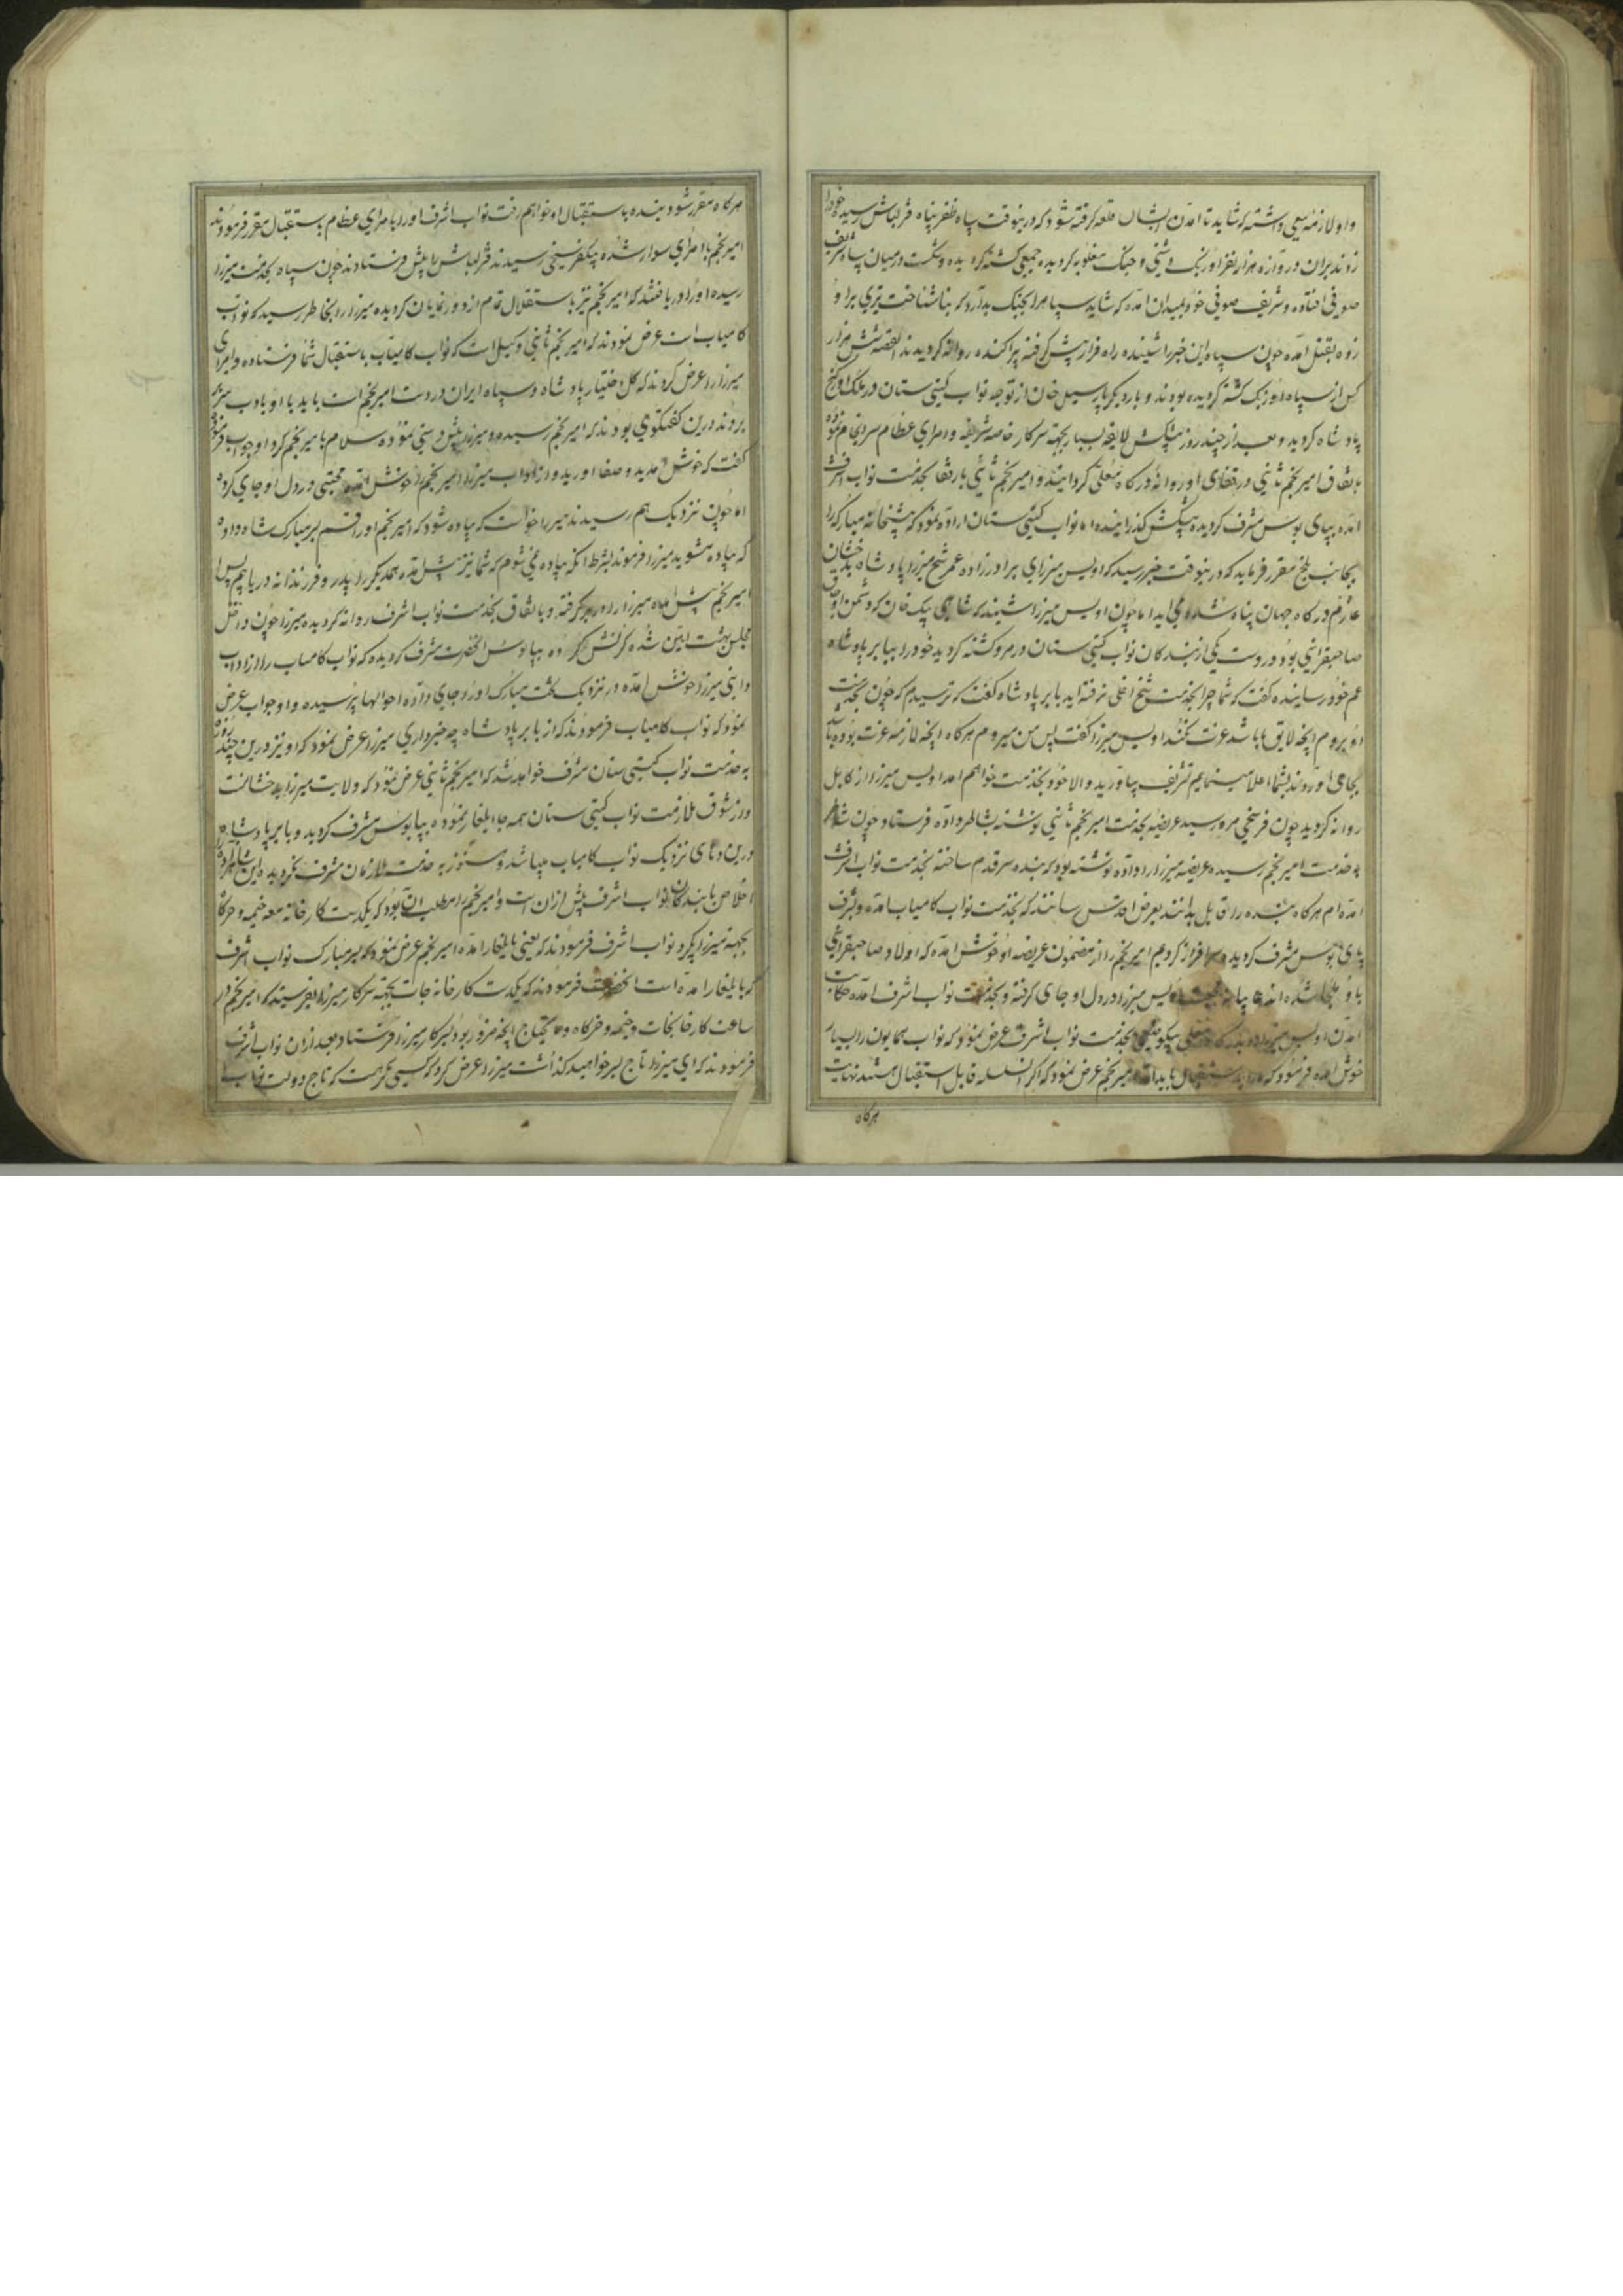 داو لازمهٔ سعی داشته که شاید تا آمدن ایشان قلعه گرفته شود که درینوقت سپاه ظفر پناه قزلباش رسیده خود را
زدند بران دروازه هزار نفر اوزبک و جنگ مغلوبه کردیده جمعی کشته کردیده و شکست در میان سپاه شریف
صوفی افتاده و شریف صوفی خود بمیدان آمده که شاید سپاه را بجنک بدارد که بناشناخت تیری برا و
زده بقتل آمده چون سپاه این خبر را شنیده راه فرار پیش گرفته پراکنده روانه کردیدند القصه شش هزار
کس از سپاه اوزبک کشته کردیده بودند و بار دیکر پارسیل خان از توجه نواب کیتی ستان در ملک اورکنج
پادشاه کردید و بعد از چند روز پیشکش لایقه بسیار بجهة سرکار خاصه شریفه و امرای عظام سرانجام نموده
باتفاق امیر نجم ثانی و رفقای او روانهٔ درکاه معلی کردانیند و امیر نجم ثانی با رفقا بخدمت نواب اشرف
آمده بپای بوس مشرف کردیده پیشکش گذرانیده اما نواب کیتی ستان اراده نمود که پیشخانهٔ مبارکه را
بجانب بلخ مقرر فرماید که درینوقت خبر رسید که اویس میرزای برادرزاده عمر شیخ میرزا پادشاه بدخشان
عازم درکاه جهان پناه شده می اید اما چون اویس میرزا شنیند که شاهی بیک خان که دشمن اولاد
صاحبقرانی بود در دست یکی از بندکان نواب کیتی ستان در مرو کشته کردید خود را ببابر پادشاه
عم خود رسانیده گفت که شما چرا بخدمت شیخ اغلی نرفته اید بابر پادشاه گفت که ترسیدم که چون بخدمت
او بروم انچه لایق ما باشد عزت نکند اویس میرزا گفت پس من میروم هرکاه انچه لازمهٔ عزت بوده باشد
بجای اوردند بشما اعلام مینمایم تشریف بیاورید والا خود بخدمت خواهم امد اویس میرزا از کابل
روانه کردید چون فرسخی مرو رسید عریضه بخدمت امیر نجم ثانی نوشته بشاطر داده فرستاد چون شاطر
بخدمت امیر نجم رسیده عریضه میرزا را داده نوشته بود که بنده سر قدم ساخته بخدمت نواب اشرف
آمده ام هرکاه بنده را قابل بدانند بعرض اقدس رسانند که بخدمت نواب کامیاب آمده و بشرف
پای بوس مشرف کردیده سرافراز کردم امیر نجم را از مضمون عریضه او خوش آمده که اولاد صاحبقرانی
باو ملتجا شده اند اویس میرزا در دل او جای کرفته و بخدمت نواب اشرف آمده حکایت
آمدن اویس میرزا بخدمت نواب اشرف عرض نمود که نواب همایون را بسیار
خوش آمده فرمود که استقبال باید امیر نجم عرض نمود که اگر السلسله قابل استقبال هستند نهایت
هرکاه
هرکاه مقرر شود بنده باستقبال او خواهم رفت نواب اشرف او را با امرای عظام باستقبال مقرر فرمودند
امیر نجم با امرای سوار شده بیکفرسخی رسیدند قزلباش را پیش فرستادند چون سپاه بخدمت میرزا
رسیده او را دریافتند که امیر نجم نیز باستقلال تمام از دور نمایان کردیده میرزا را بخاطر رسید که نواب
کامیاب است عرض نمودند که امیر نجم ثانی وکیل است که نواب کامیاب باستقبال شما فرستاده و امرای
میرزا را عرض کردند که کل اختیار پادشاه و سپاه ایران در دست امیر نجم است باید با او بادب سر
بردند درین کفتگوی بودند که امیر نجم رسیده و میرزا پیش دستی نموده سلام بامیر نجم کرد او جواب
گفت که خوش آمدید و صفا اوردید و از آداب میرزا امیر نجم را خوش آمده محبتی در دل او جای کرده
اما چون نزدیک هم رسیدند میرزا خواست که پیاده شود که امیر نجم او را قسم بسر مبارک شاه داد
که پیاده مشوید میرزا فرمودند بشرط انکه پیاده نمی شوم که شما نیز پیش آمده همدیکر را پدر و فرزندانه دریابیم پس
امیر نجم پیش آمده میرزا را در بر گرفته و باتفاق بخدمت نواب اشرف روانه کردیده میرزا چون داخل
مجلس بهشت آیین شده کرنش کرده بپابوس انحضرت مشرف کردیده که نواب کامیاب را از آداب
دانی میرزا خوش آمده در نزدیک تخت مبارک او را جای داده احوالها پرسیده و او جواب عرض
نمود که نواب کامیاب فرمودند که از بابر پادشاه چه خبر داری میرزا عرض نمود که او نیز درین چند روزه
به خدمت نواب کیتی ستان مشرف خواهد شد که امیر نجم ثانی عرض نمود که ولایت میرزا بدخشانست
و از شوق ملازمت نواب کیتی ستان همه جا ایلغار نموده بپابوس مشرف کردید و بابر پادشاه
نزدیک نواب کامیاب میباشد و هنوز به خدمت ملازمان مشرف نکردیده این
اخلاص با بندکان نواب اشرف پیش ازان است و امیر نجم را مطلب آن بود که یکدست کارخانه معه خیمه و خرکاه
بجهة میرزا بگیرد نواب اشرف فرمودند که یعنی بایلغار آمده امیر نجم عرض نمود که بسر مبارک نواب اشرف
که بایلغار آمده است انحضرت فرمودند که یکدست کارخانه جات بجهة سرکار میرزا بفرستید که امیر نجم در
ساعت کارخانجات و خیمه و خرکاه و مایحتاج انچه ضرور بود بسرکار میرزا فرستاد بعد ازان نواب اشرف
فرمودند که ای میرزا تاج بسر خواهید گذاشت میرزا عرض کرد که کسی که تاج دولت